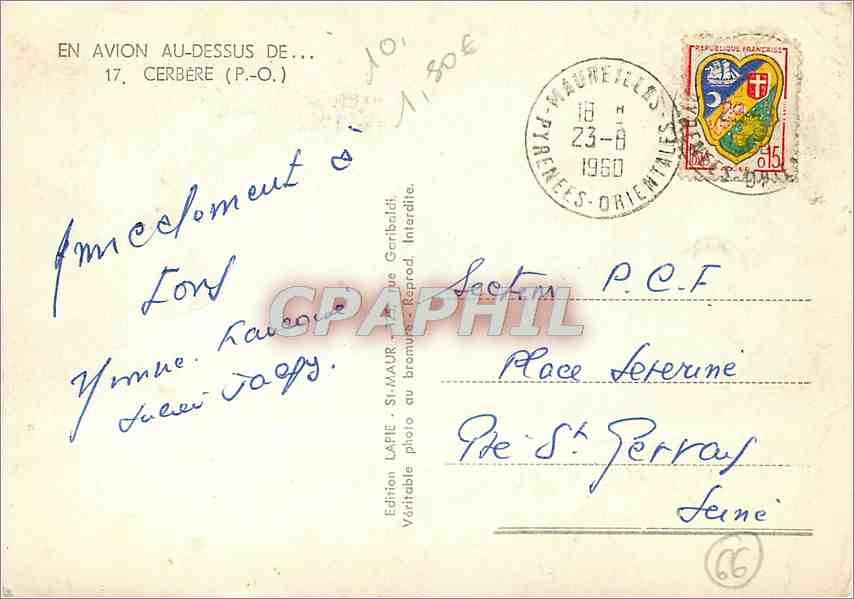 EN AVION AU-DESSUS DE...
17. CERBÈRE (P.-O.)
10.
1,80€
MAUREILLAS
18 H
23-8
1960
PYRENEES-ORIENTALES
REPUBLIQUE FRANÇAISE
0,15
Amicalement à
Tous
Yvonne.
Edition LAPIE - St-MAUR - rue Garibaldi.
Véritable photo au bromure - Reprod. Interdite.
CPAPHIL
Section P.C.F
Place Séverine
Pré St Gervais
Seine
66